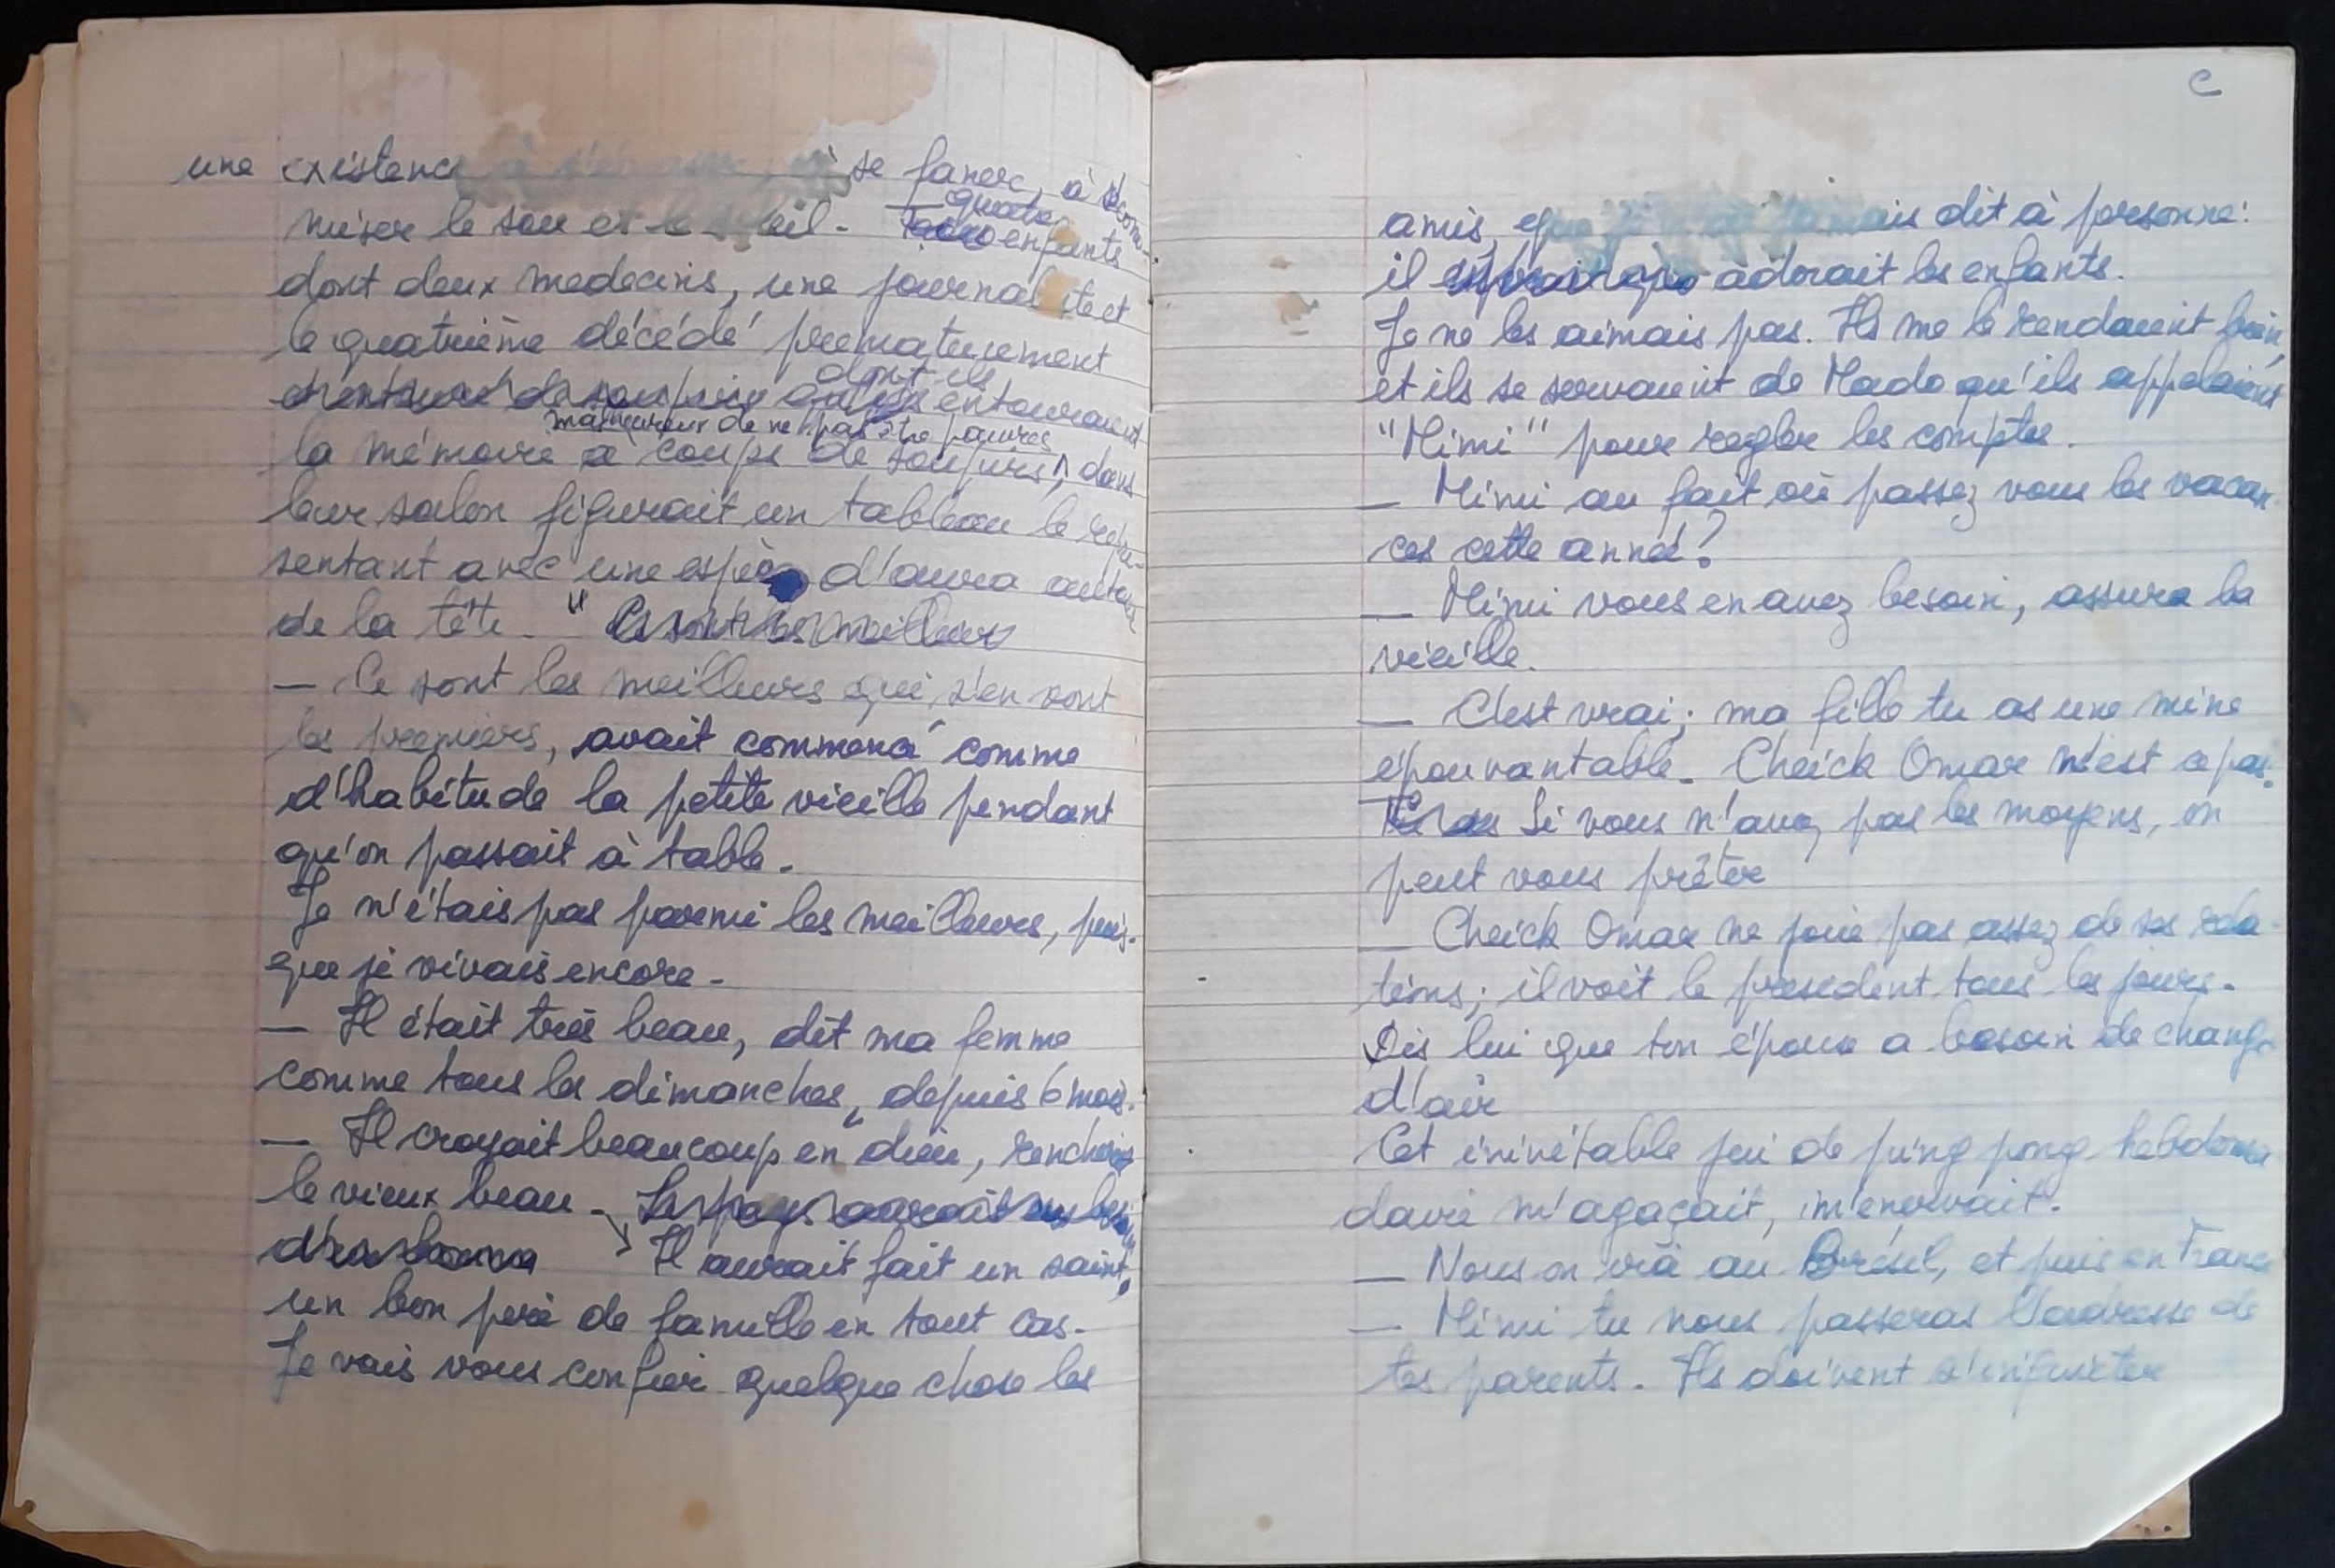 une existence à se faner, à écono-
miser le sou et le soleil. quatre enfants
dont deux medecins, une journaliste et
le quatrième décédé prematurement
dont ils entouraient
malheureux de ne pas être pauvres
la mémoire à coups de soupirs, dans
leur salon figurait un tableau le repré-
sentant avec une espèce d'aura autour
de la tête. " Ce sont les meilleurs
— Ce sont les meilleurs qui s'en vont
les premiers, avait commencé comme
d'habitude la petite vieille pendant
qu'on passait à table.
Je n'étais pas parmi les meilleurs, puis-
que je vivais encore.
— Il était très beau, dit ma femme
comme tous les dimanches, depuis 6 mois.
— Il croyait beaucoup en dieu, renchérit
le vieux beau. Le pays aurait eu besoin
d'un Il aurait fait un saint,
un bon père de famille en tout cas.
Je vais vous confier quelque chose les
C
amis, que je n'ai jamais dit à personne:
il adorait les enfants.
Je ne les aimais pas. Ils me le rendaient bien,
et ils se servaient de Mado qu'ils appelaient
"Mimi" pour regler les comptes.
— Mimi au fait où passez vous les vacan
ces cette année?
— Mimi vous en avez besoin, assura la
vieille.
— C'est vrai; ma fille tu as une mine
épouvantable. Cheick Omar n'est ce pas?
Si vous n'avez pas les moyens, on
peut vous prêter
— Cheick Omar ne joue pas assez de ses rela-
tions; il voit le president tous les jours.
Dis lui que ton épouse a besoin de change
d'air
Cet inévitable jeu de ping pong hebdoma
daire m'agaçait, m'enervait.
— Nous on ira au Brésil, et puis en France
— Mimi tu nous passeras l'adresse de
tes parents. Ils doivent s'inquiéter